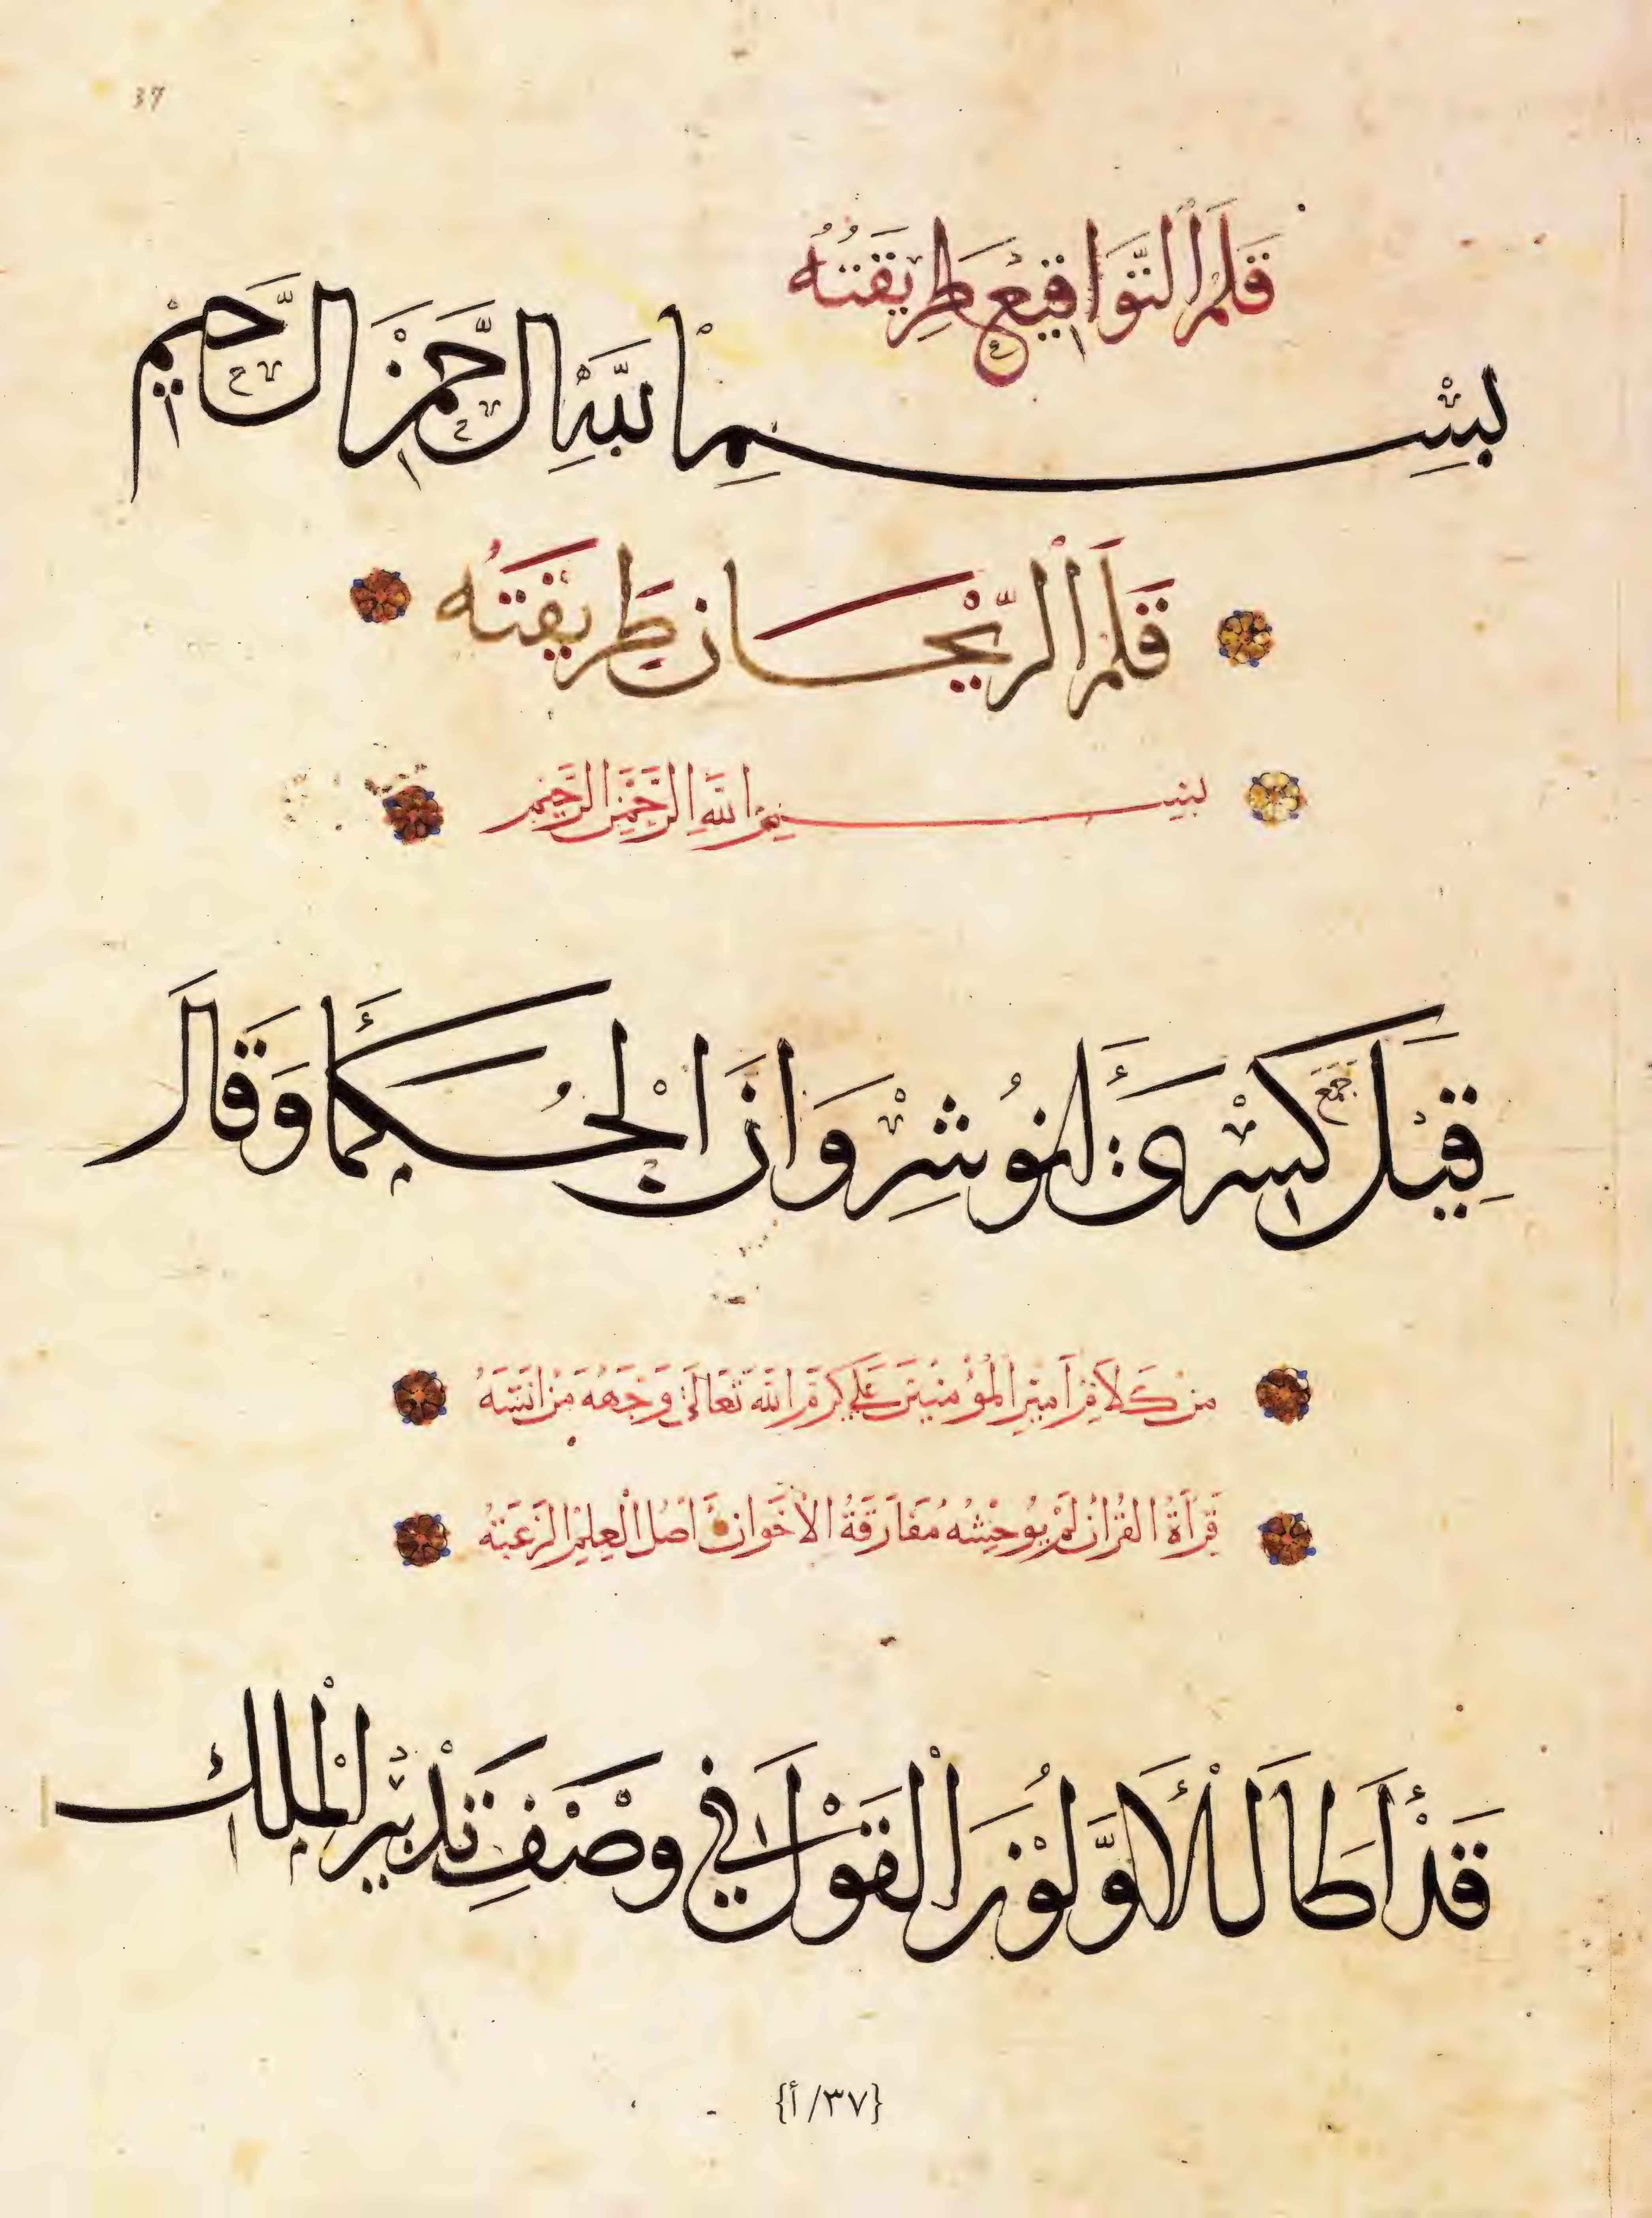 37
قَلَمُ التَّوَاقِيعْ طَرِيقَتُهُ
بِسْمِ اللَّهِ الرَّحْمٰنِ الرَّحِيْمِ
قَلَمُ الرَّيْحَان طَرِيقَتُه
بِسْمِ اللَّهِ الرَّحْمٰنِ الرَّحِيمِ
قِيْلَ جَمَعَ كَسْرَىٰ أَنُوْشِرْوَانَ الْحُكَمَأَ وَقَالَ
مِن كَلَامِ أَمِيرِ الْمُؤمِنِينَ عَلِي كَرَّمَ اللَّهُ تَعَالَى وَجَهَهُ مَنْ انَسَهُ
قِرَأَةُ القُرْأن لَمْ يُوحِشْهُ مُفَارَقَةُ الْأخَوان أَصْلُ الْعِلْمِ الرَغبَة
قَدْ أَطَالَ الْأَوَّلُوْنَ الْقَوْلَ فِي وَصْفِ تَدْبِيْرِ الْمُلك
{٣٧/أ}